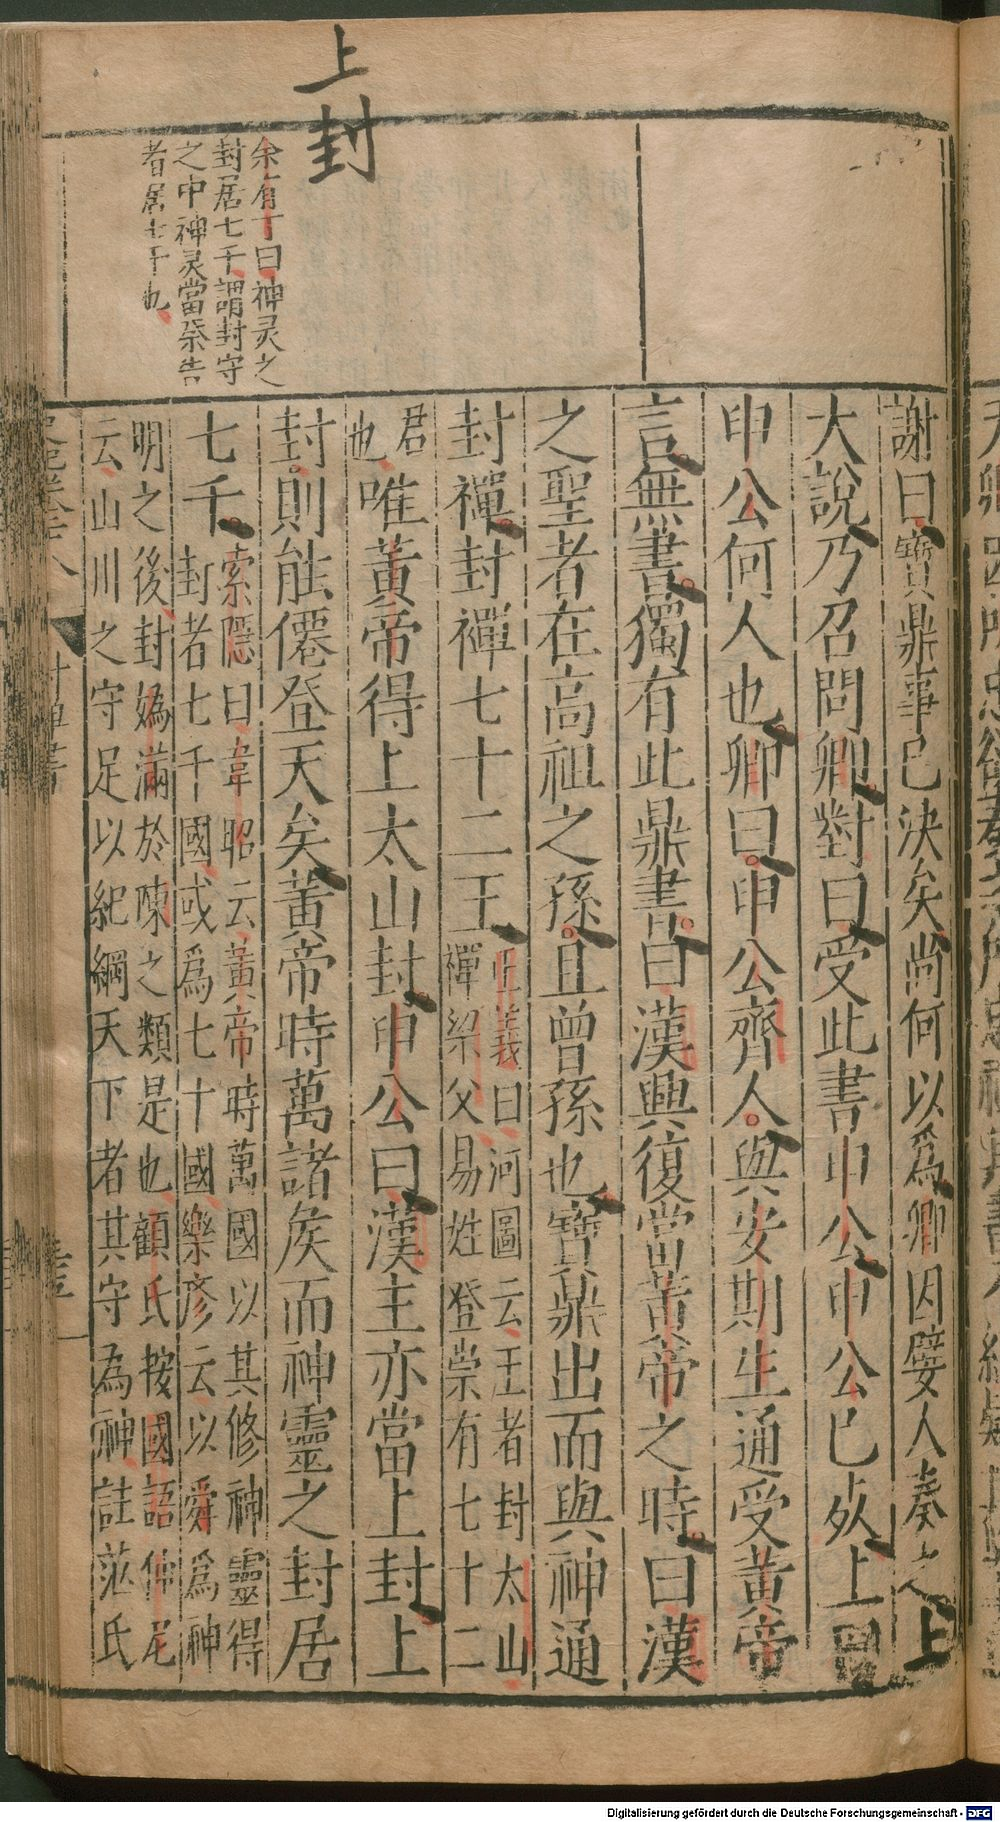 上封
余有丁曰神灵之
封居七千謂封守
之中神灵當祭告
者居七千也
謝曰寶鼎事已決矣尚何以爲卿因嬖人奏之上
大說乃召問卿對曰受此書申公申公已死上曰
申公何人也卿曰申公齊人與安期生通受黃帝
言無書獨有此鼎書曰漢興復當黃帝之時曰漢
之聖者在高祖之孫且曾孫也寶鼎出而與神通
封禪封禪七十二王
正義曰河圖云王者封太山
禪梁父易姓登崇有七十二
君
也
唯黃帝得上太山封申公曰漢主亦當上封上
封則能僊登天矣黃帝時萬諸矦而神靈之封居
七千
索隱曰韋昭云黃帝時萬國以其修神靈得
封者七千國或爲七十國樂彦云以舜爲神
明之後封嬀滿於陳之類是也顧氏按國語仲尼
云山川之守足以紀綱天下者其守為神註范氏
Digitalisierung gefördert durch die Deutsche Forschungsgemeinschaft - DFG